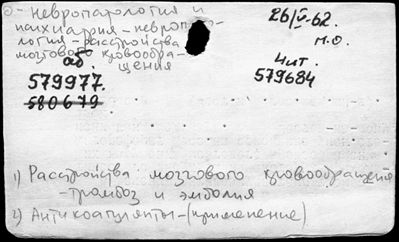 5-невропатология и
психиатрия-невропато-
логия-расстройства
мозгового кровообра-
щения
аб.
579977.
580679
26/V-62.
м.о.
Чит.
579684
1) Расстройства мозгового кровообращения
-тромбоз и эмболия
2) Антикоагулянты-(применение)